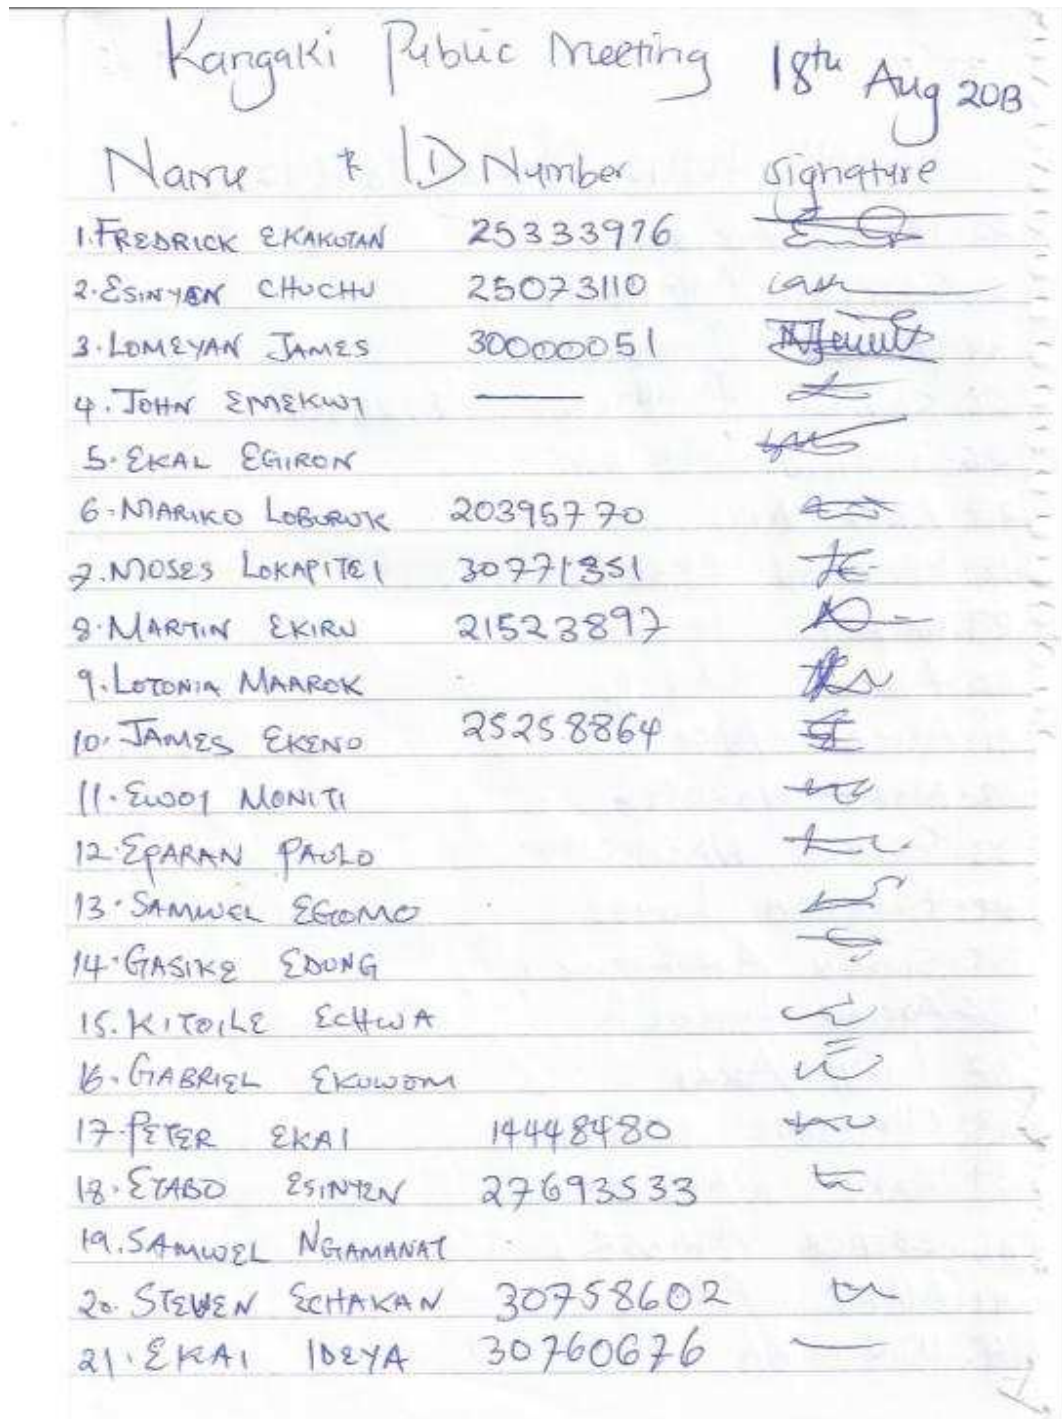 Kangaki Public Meeting 18th Aug 2013
Name & ID Number Signature
1. FREDRICK EKAKUTAN 25333976
2. ESINYEN CHUCHU 25073110
3. LOMEYAN JAMES 30000051
4. JOHN EMEKWI —
5. EKAL EGIRON
6. MARIKO LOBURUK 20395770
7. MOSES LOKAPITEI 30771351
8. MARTIN EKIRU 21523897
9. LOTONIA MAAROK
10. JAMES EKENO 25258864
11. EWOI MONITI
12. EPARAN PAULO
13. SAMWEL EGOMO
14. GASIKE EDUNG
15. KITOILE ECHWA
16. GABRIEL EKUWOM
17. PETER EKAI 14448480
18. ETABO ESINYEN 27693533
19. SAMWEL NGAMANAT
20. STEVEN ECHAKAN 30758602
21. EKAI IDEYA 30760676